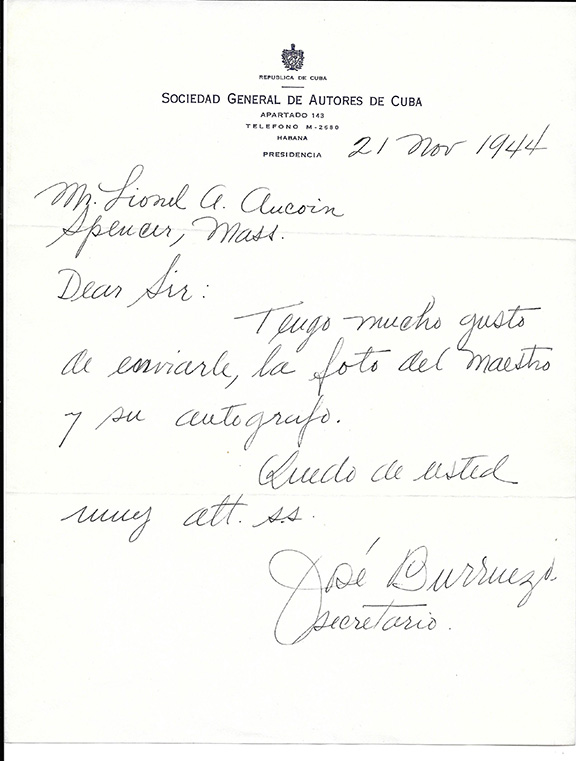 REPUBLICA DE CUBA
SOCIEDAD GENERAL DE AUTORES DE CUBA
APARTADO 143
TELEFONO M-2680
HABANA
PRESIDENCIA
21 Nov 1944
Mr. Lionel A. Aucoin
Spencer, Mass.
Dear Sir:
Tengo mucho gusto
de enviarle, la foto del Maestro
y su autografo.
Quedo de usted
muy att. s.s.
José Burruezo.
Secretario.